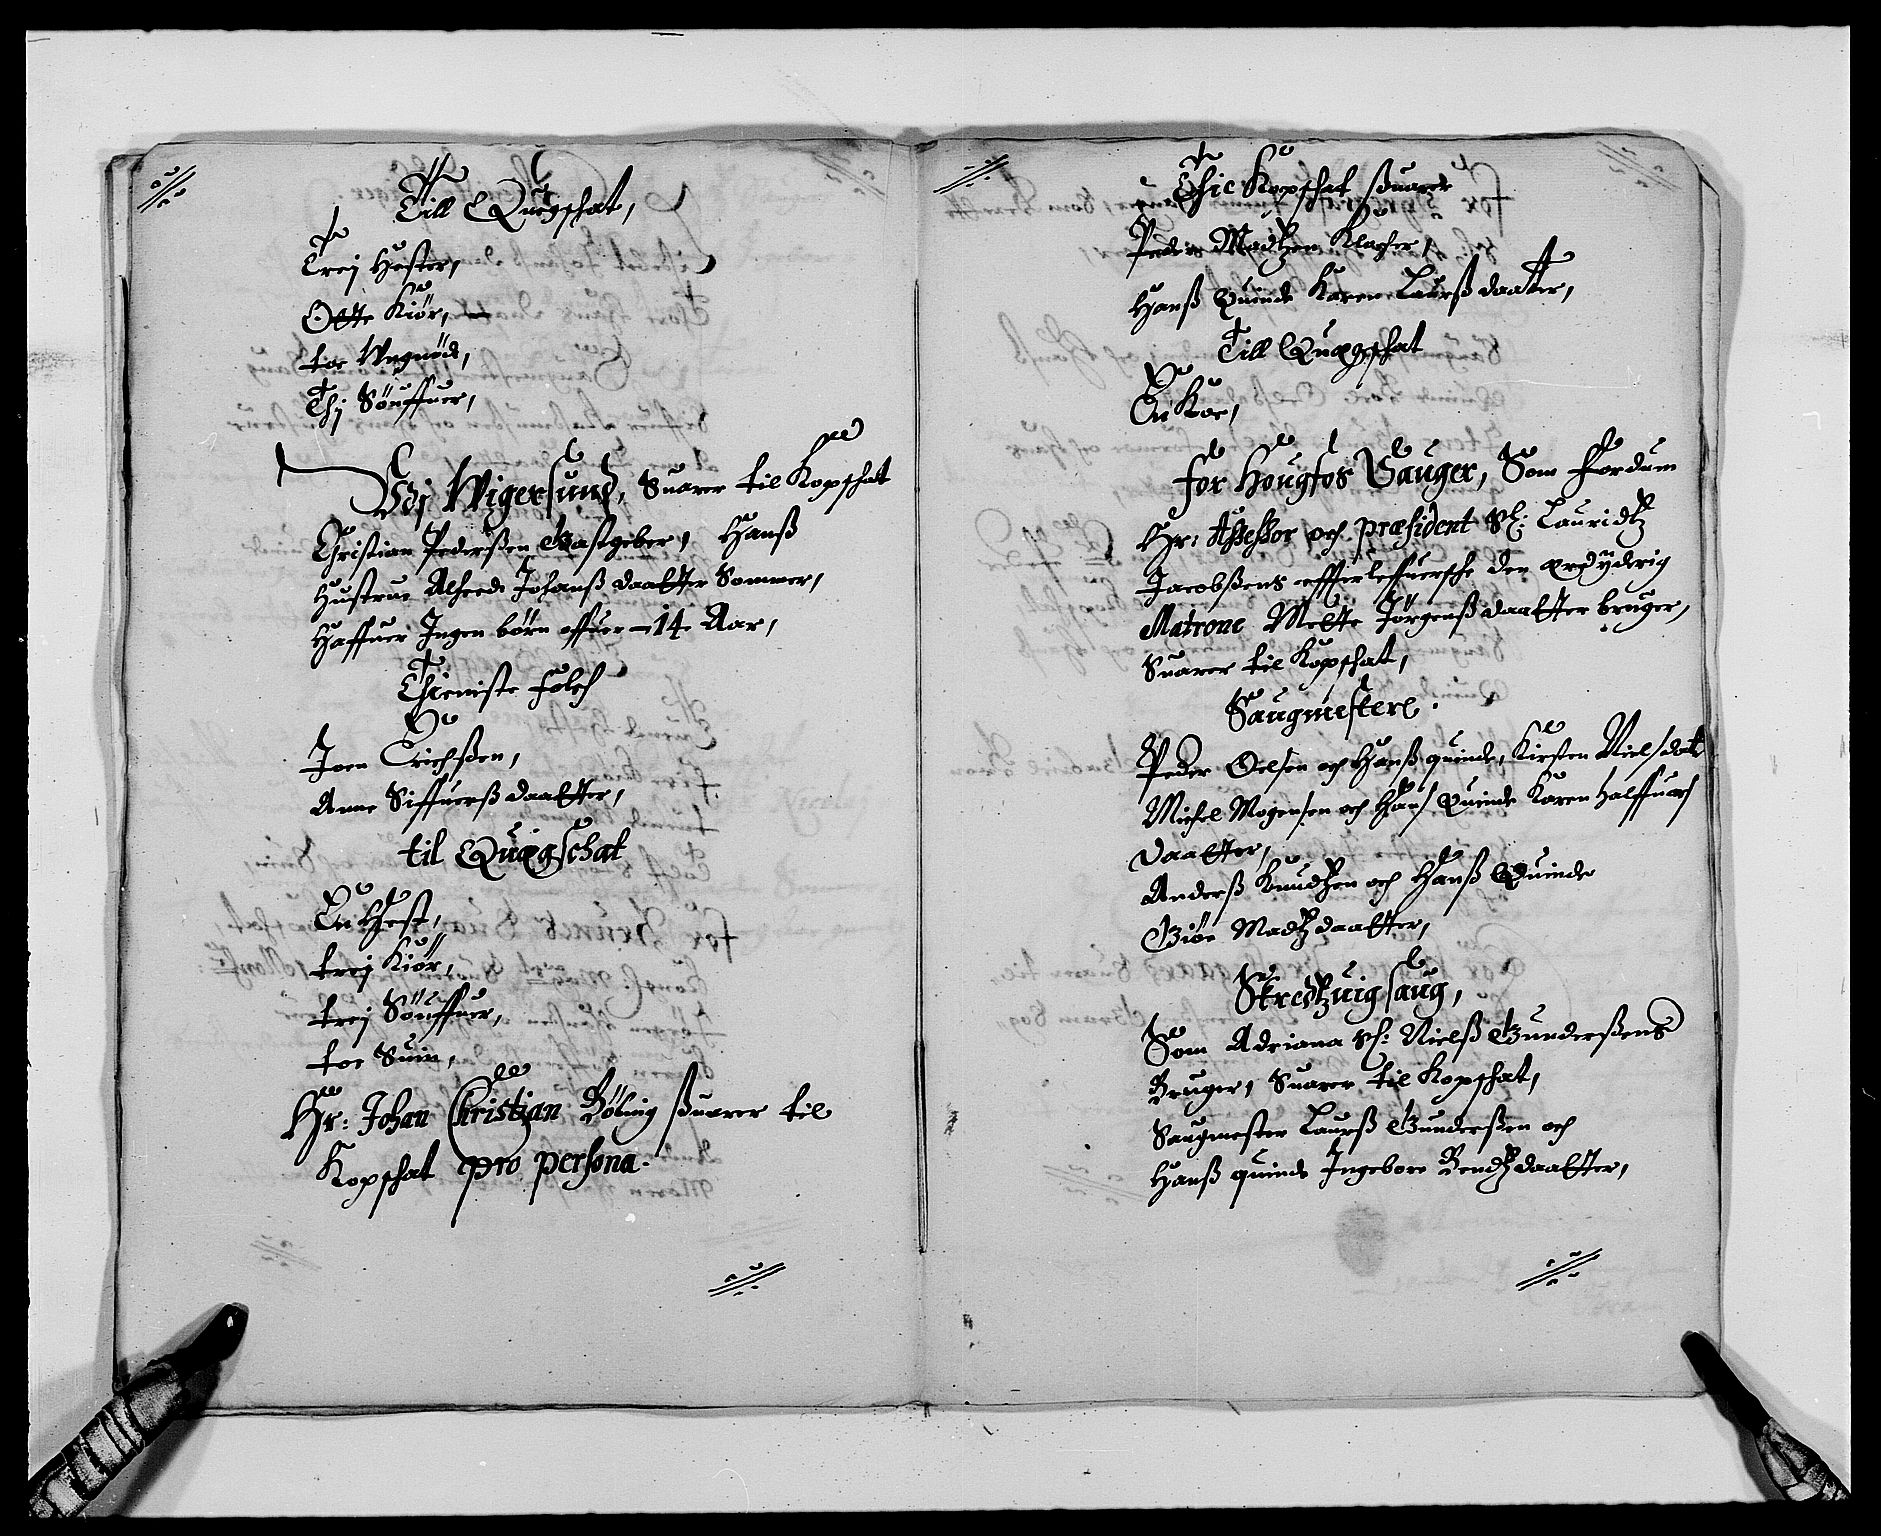 Till Quegschat,
Trej Hester,
Otte Kiör,
toe Ungnöd,
Thj Söuffuer,
Wj Wigersund, Suarer til Kopschat
Christian Pederßen Gastgeber, Hanß
Hustrue Alheed Johanß daatter Sommer,
Haffuer Ingen börn offuer 14 Aar,
Thieniste Folch
Joen Erichßen,
Anne Siffuerß daatter,
til Quægschat
En Hest,
trej Kiör,
trej Söuffuer,
toe Suin,
Hr: Johan Christian Böling ßuarer til
Kopschat pro persona.
Thie Kopschat ßuarer
Peder Madtzen Klocher,
Hanß Quinde Karen Laurß daatter,
Till Quægschat
En Koe,
for Hougfos Sauger, Som Fordum
Hr: Assessor och præsident Sl: Lauridtz
Jacobßens effterleffuersche den erdÿderig
Matrone Mette Jörgenß daatter bruger,
Suarer til Kopschat,
Saugmestere.
Peder Oelsen och Hanß quinde, Kirsten Nielsdat
Michel Mogensen och Hans Quinde Karen Halffuors
daatter,
Anderß Knudtzen och Hanß Quinde
Giöe Madtz daatter,
Skredtzuig saug,
Som Adriana Sl: Nielß Gunderßens
Bruger, Suarer til Kopschat,
Saugmester Laurß Gunderßen och
Hanß quinde Ingebore Bendtz daatter,